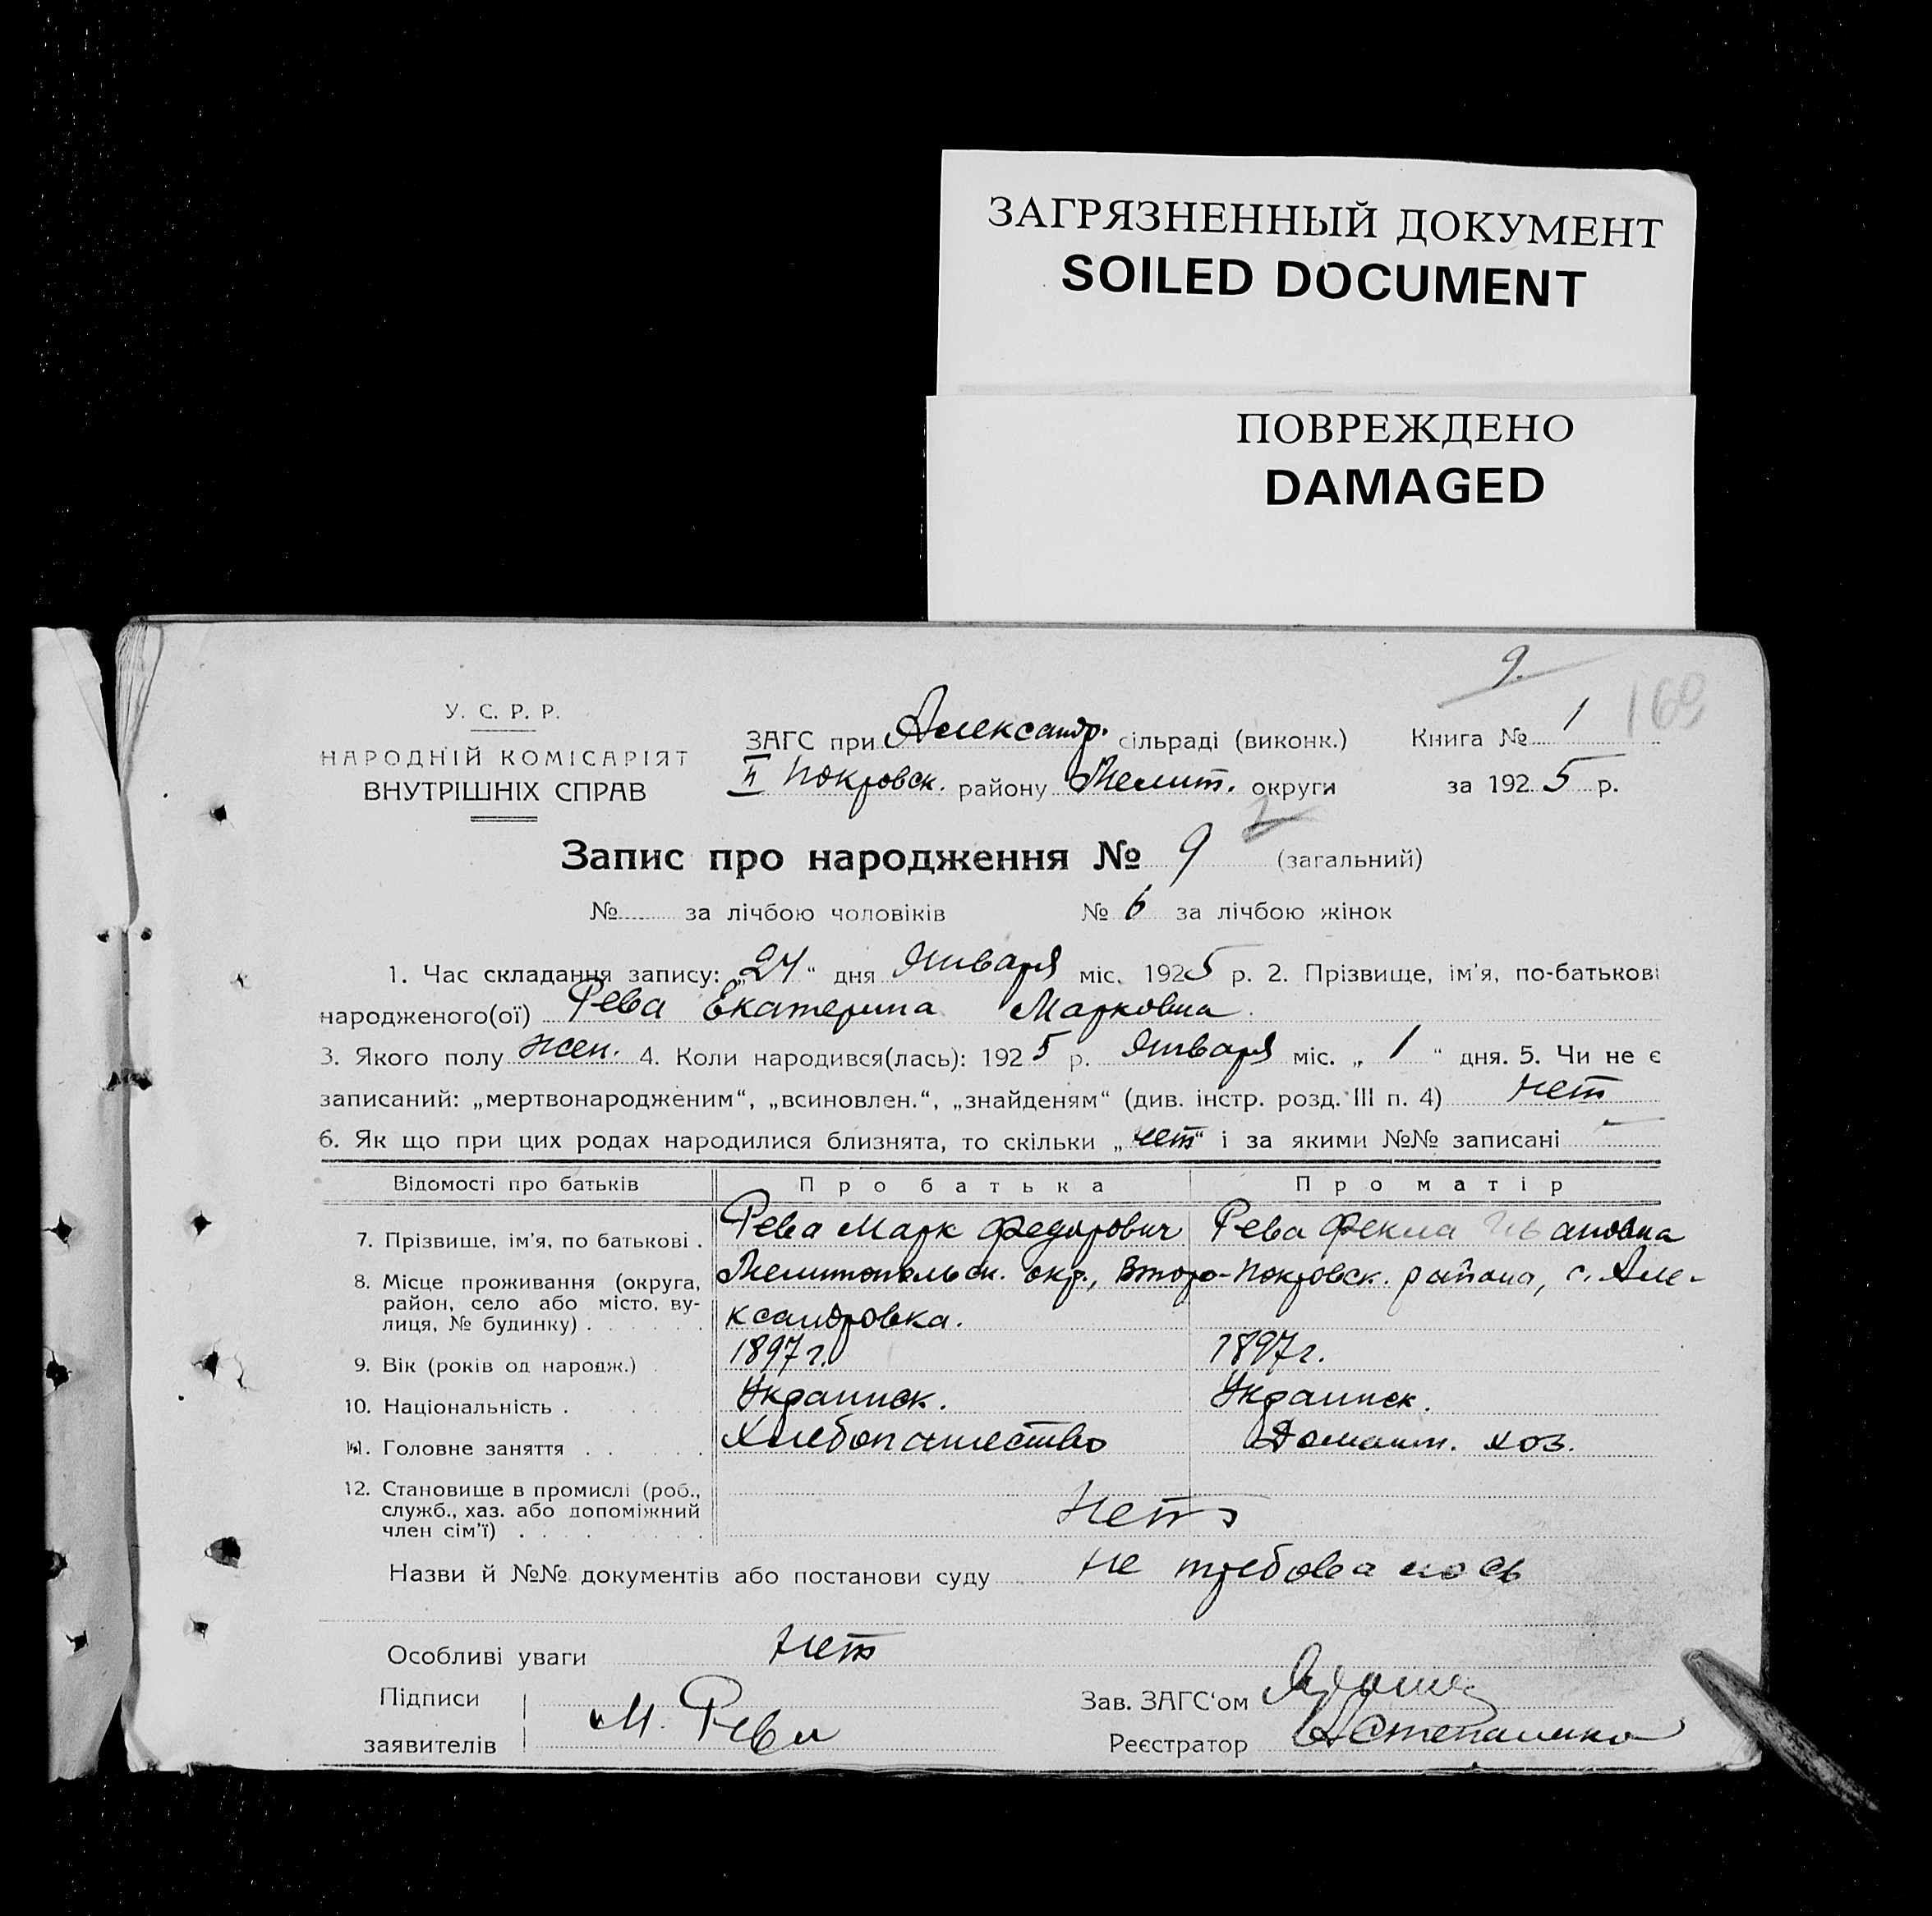 ЗАГРЯЗНЕННЫЙ ДОКУМЕНТ
SOILED DOCUMENT
ПОВРЕЖДЕНО
DAMAGED
9.
160
У. С. Р. Р.
НАРОДНІЙ КОМІСАРІЯТ
ВНУТРІШНІХ СПРАВ
ЗАГС при Александр. сільраді (виконк.)
II Покровск. району Мелит. округи
Книга № 1
за 1925 р.
Запис про народження № 9 (загальний)
№ за лічбою чоловіків № 6 за лічбою жінок
1. Час складання запису: „24“ дня Января міс. 1925 р. 2. Прізвище, ім'я, по-батькові
народженого(ої) Рева Екатерина Марковна.
3. Якого полу жен. 4. Коли народився(лась): 1925 р. Января міс. „1“ дня. 5. Чи не є
записаний: „мертвонародженим“, „всиновлен.“, „знайденям“ (див. інстр. розд. III п. 4) нет
6. Як що при цих родах народилися близнята, то скільки „нет“ і за якими №№ записані —
Відомості про батьків Про батька Про матір
7. Прізвище, ім'я, по батькові . Рева Марк Федорович Рева Фекла Ивановна
8. Місце проживання (округа, Мелитопольск. окр., Второ-Покровск. района, с. Але-
район, село або місто, ву-
лиця, № будинку) . ксандровка.
9. Вік (років од народж.) 1897 г. 1897 г.
10. Національність . Украинск. Украинск.
11. Головне заняття . . Хлебопашество Домашн. хоз.
12. Становище в промислі (роб.,
служб., хаз. або допоміжний
член сім'ї) . Нет
Назви й №№ документів або постанови суду не требовалось
Особливі уваги нет
Підписи
заявителів М. Рева
Зав. ЗАГС'ом
Реєстратор Степаненко